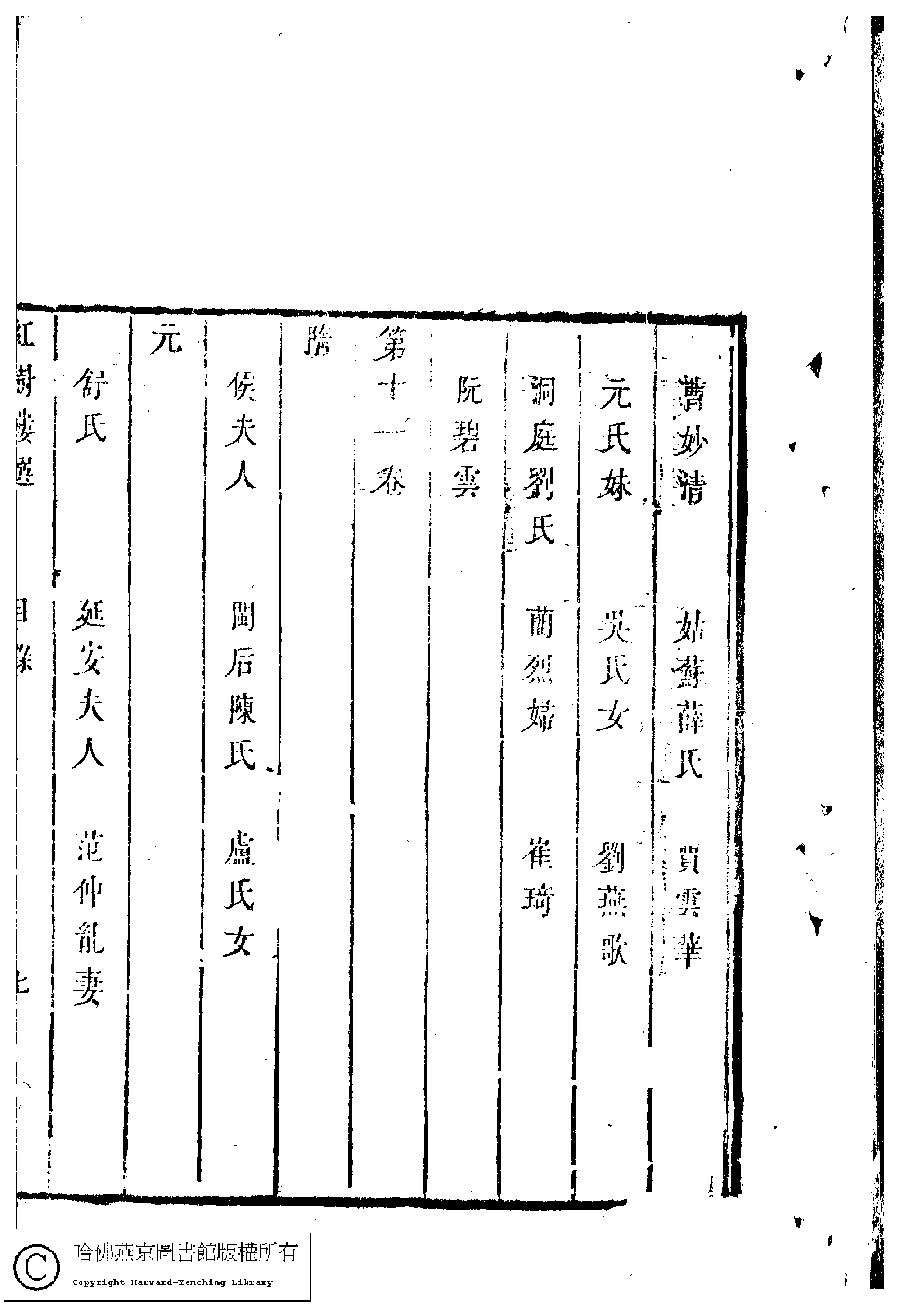 曹妙清 姑蘇薛氏 賈雲華
元氏妹 吳氏女 劉燕歌
洞庭劉氏 蘭烈婦 崔琦
阮碧雲
第十一卷
隋
侯夫人 閩后陳氏 盧氏女
元
舒氏 延安夫人 范仲胤妻
紅樹樓選 目錄 七
哈佛燕京圖書館版權所有
Copyright Harvard-Yenching Library